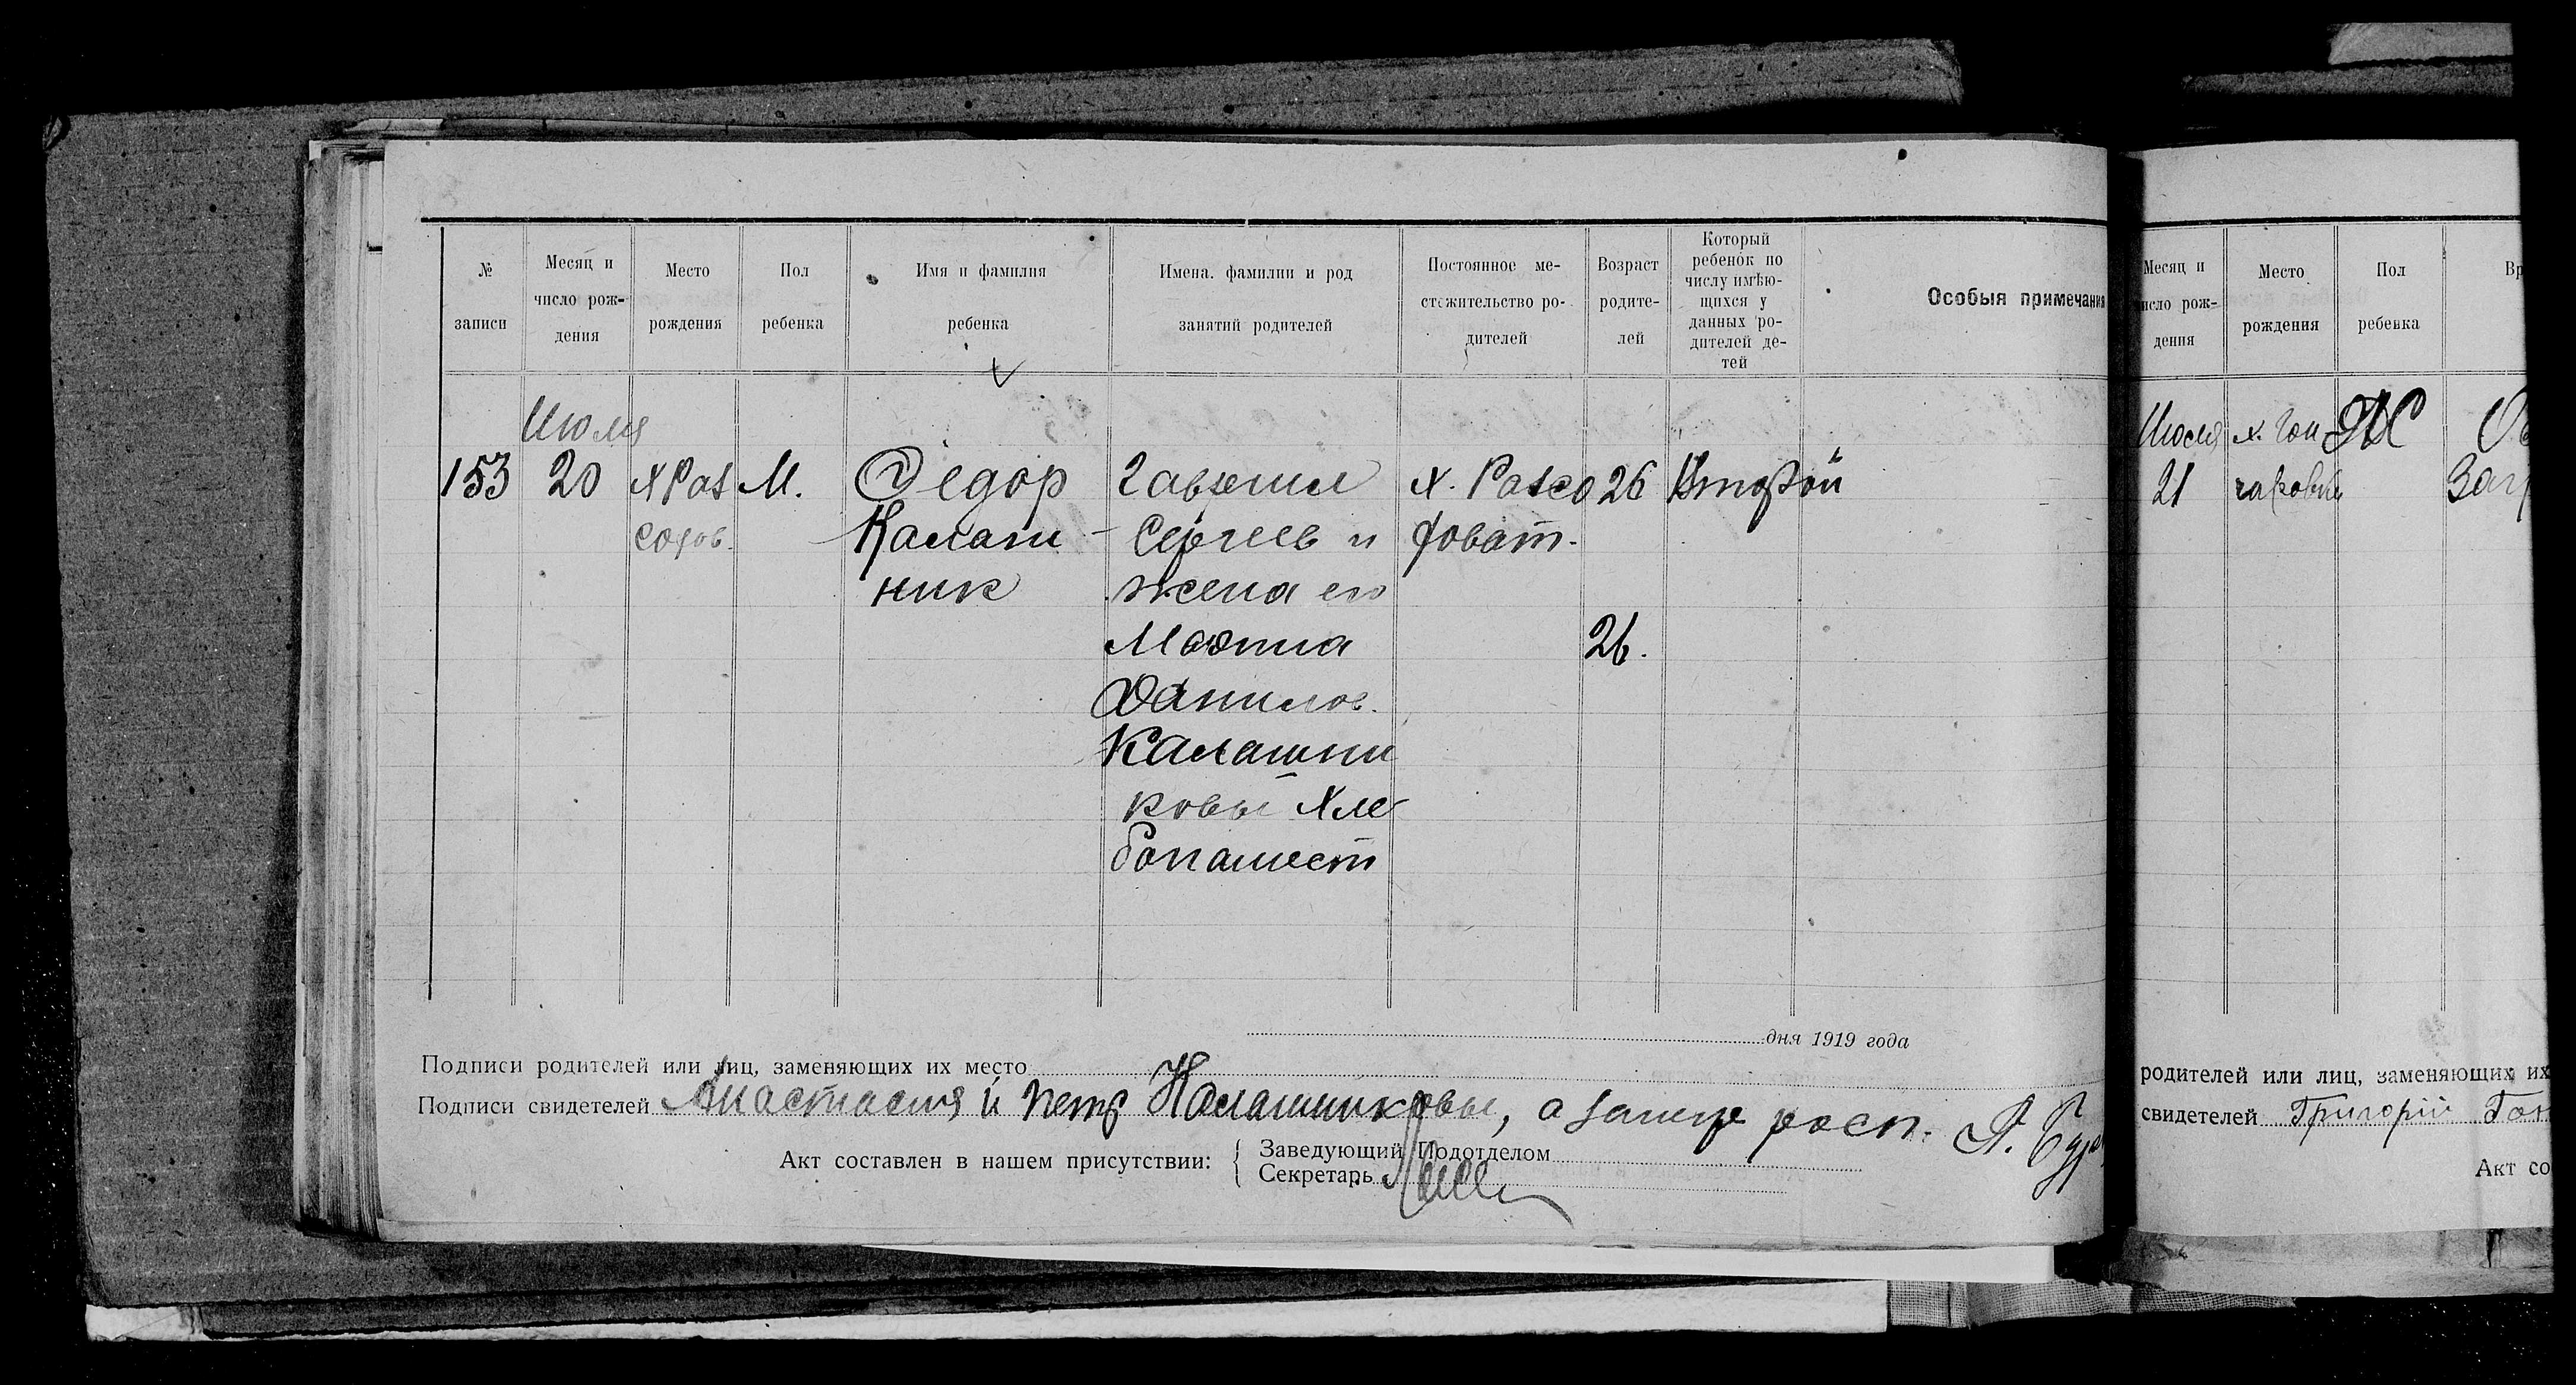 № записи
Месяц и число рождения
Место рождения
Пол ребенка
Имя и фамилия ребенка
Имена. фамилии и род занятий родителей
Постоянное местожительство родителей
Возраст родителей
Который ребенок по числу имѣющихся у данных родителей детей
Особыя примечания
Июля
153 20 М. Федор Гавриил 26 Второй
Калаш- Сергеев и
ник жена его
26.
Данилов.
Калашни
ковы Хле
бопашест
дня 1919 года
Подписи родителей или лиц, заменяющих их место
Подписи свидетелей Анастасия и Петр Калашниковы, а за
Акт составлен в нашем присутствии: Заведующий Подотделом
Секретарь
Месяц и число рождения
Место рождения
Пол ребенка
Июля
21
родителей или лиц, заменяющих их
свидетелей Григорий Гон
Акт со